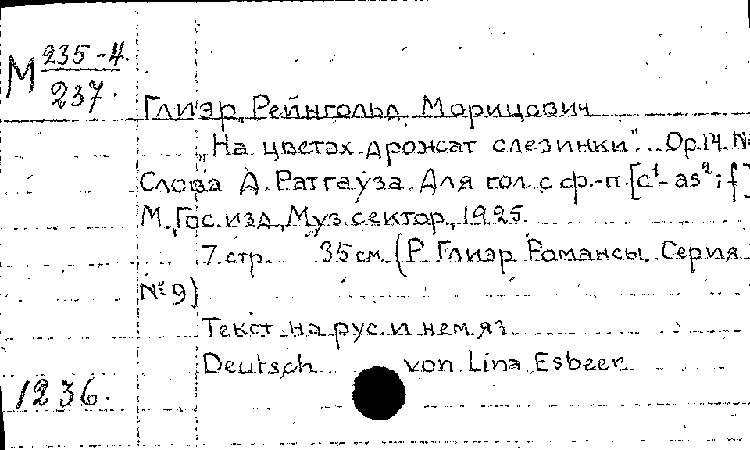 М 235-4.
237.
Глиэр, Рейнгольд Морицович
„На цветах дрожат слезинки"... Op.14. №
Слова Д. Ратгауза. Для гол. с ф.-п. [c¹-as²; f]
М., Гос. изд., Муз. сектор, 1925.
7 стр. 35 см. (Р. Глиэр. Романсы. Серия
№ 9)
Текст на рус. и нем. яз.
Deutsch von Lina Esbeer
1236.